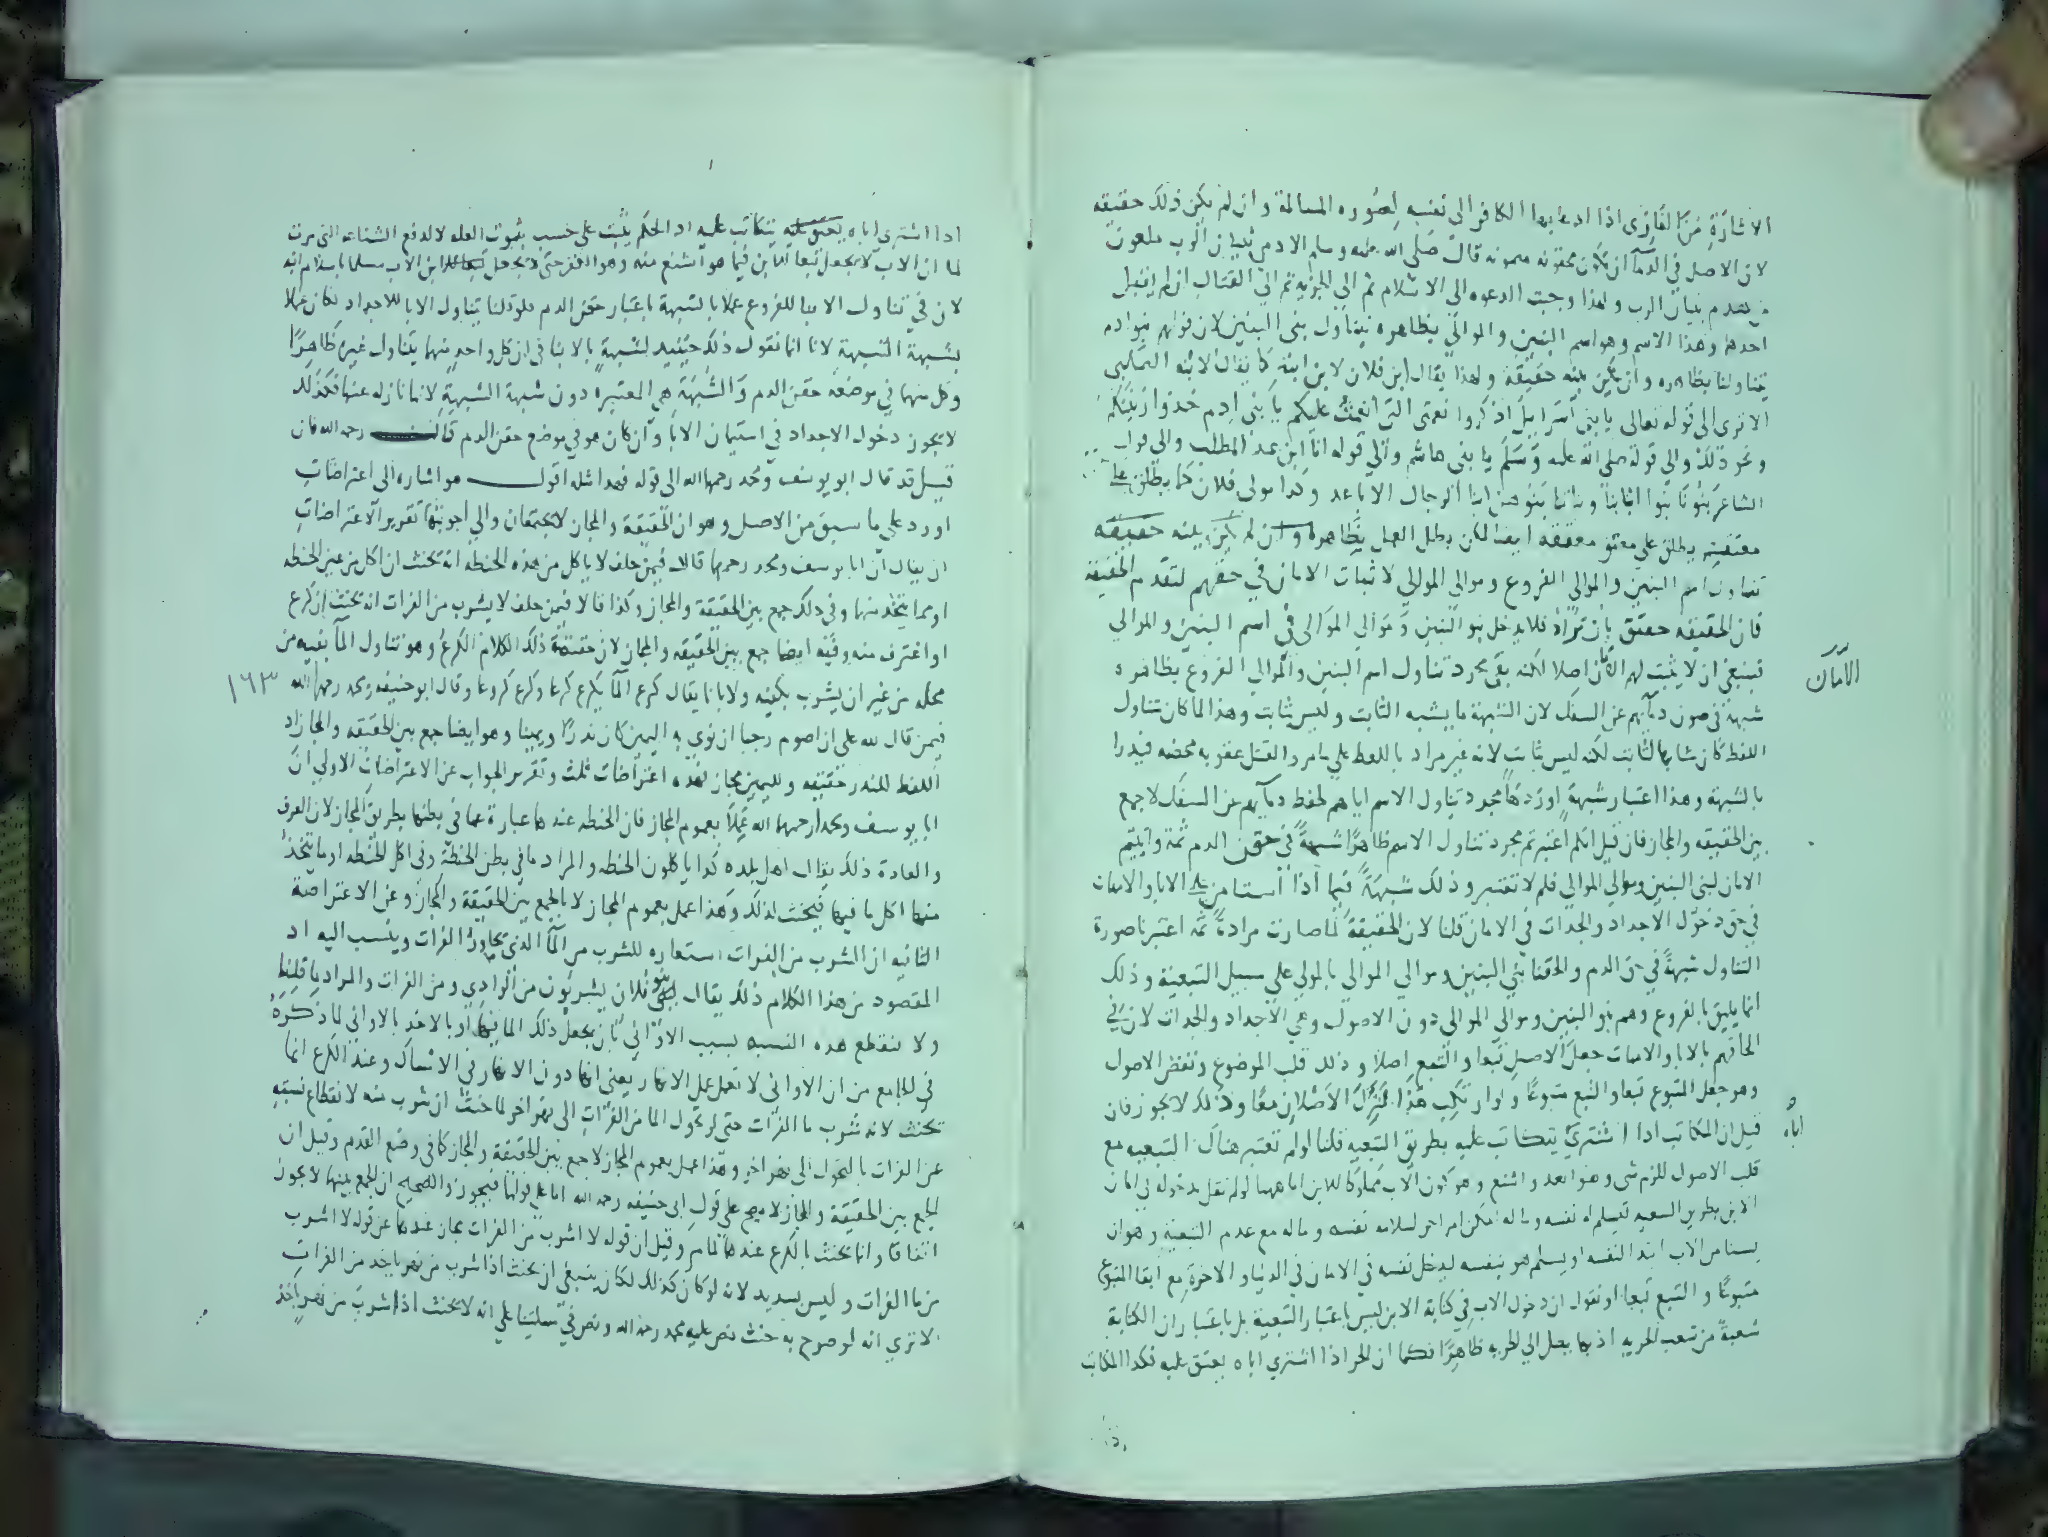 الاشارة من الغازى اذا دعا بها الكافر الى نفسه لصورة المسالمة وان لم يكن ذلك حقيقه
لان الاصل في الدما ان تكون محقونه قال صلى الله عليه وسلم الادمي بنيان الرب ملعون
من هدم بنيان الرب ولهذا وجبت الدعوه الى الاسلام ثم الى الجزيه ثم الى القتال ان لم يقبل
احدها وهذا الاسم وهو اسم البنين والموالي بظاهره يتناول بنى البنين لان قولهم بنوادم
يتناولنا بظاهره وان لم يكن حقيقة ولهذا يقال ابن فلان لابن ابنه كما يقال لابنه الصلبي
الا ترى الى قوله تعالى يا بني اسرايل اذكروا نعمتى التي انعمت عليكم يا بنى ادم خذوا زينتكم
ونحو ذلك والي قوله صلى الله عليه وسلم يا بنى هاشم والي قوله انا ابن عبد المطلب والى قول
الشاعر بنونا بنوا ابنائنا وبناتنا بنوهن ابنا الرجال الاباعد وكذا مولى فلان كما يطلق على
معتقه يطلق على معتق معتقه ايضا لكن بطل العمل بظاهره وان لم يكن حقيقه
تناول اسم البنين والموالي الفروع وموالي الموالي لاثبات الامان في حقهم لتقدم الحقيقة
فان الحقيقه احق بان تراد فلا يدخل بنو البنين وموالي الموالى في اسم البنين والموالي
فينبغي ان لا يثبت لهم الامان اصلا لكنه بقى مجرد تناول اسم البنين والموالي الفروع بظاهره
شبهه في صون دمايهم عن السفك لان الشبهة ما يشبه الثابت وليس بثابت وهذا لما كان تناول
اللفظ كان مشابها للثابت لكنه ليس بثابت لانه غير مراد باللفظ على ما مر والقتل عقوبه محضه فيدرا
بالشبهة وهذا اعتبار شبهة اوردها مجرد تناول الاسم اياهم لحفظ دمايهم عن السفك لا جمع
بين الحقيقه والمجاز فان قيل انكم اعتبرتم مجرد تناول الاسم ظاهرا شبهة في حقن الدم ثمة واثبتم
الامان لبنى البنين وموالي الموالي فلم لا تعتبر وذلك شبهة فيما اذا استامن على الابا والامهات
في حق دخول الاجداد والجدات في الامان قلنا لان الحقيقة لما صارت مرادة ثمه اعتبرنا صورة
التناول شبهة في حق الدم والحقنا بني البنين وموالي الموالي بالمولي على سبيل التبعية وذلك
انما يليق بالفروع وهم بنو البنين وموالي الموالي دون الاصول وهي الاجداد والجدات لان في
الحاقهم بالابا والامهات جعل الاصل تبعا والتبع اصلا وذلك قلب الموضوع ونقض الاصول
وهو جعل المتبوع تبعا والتبع متبوعا ولو ارتكب هذا لترك الاصلان معا وذلك لا يجوز فان
قيل ان المكاتب اذا اشترى يتكاتب عليه بطريق التبعيه قلنا لو لم تعتبر هناك التبعيه مع
قلب الاصول للزم شى وهو ابعد واشنع وهو كون الاب مملوكا للابن اما ههنا لو لم نقل بدخوله في امان
الابن بطريق التبعيه لسلم له نفسه وماله امكن امر اخر لسلامه نفسه وماله مع عدم التبعية وهو ان
يستامن الاب ابتدا لنفسه او يسلم هو بنفسه ليدخل نفسه في الامان في الدنيا والاخرة مع ابقا المتبوع
متبوعا والتبع تبعا او نقول ان دخول الاب في كتابة الابن ليس باعتبار التبعية بل باعتبار ان الكتابة
شعبة من شعب الحريه اذ بها يصل الى الحريه ظاهرا فكما ان الحر اذا اشترى اباه يعتق عليه فكذا المكاتب
الامان
اباه
اذا اشترى اباه يتكاتب عليه اذ الحكم يثبت على حسب ثبوت العلة لا لدفع الشناعه التي مرت
لما ان الاب لا يجعل تبعا الابن فيما هو اشنع منه وهو الكفر حتى لا يجعل ابن الاب مسلما باسلام ابنه
لان في تناول الابنا للفروع عملا بالشبهة باعتبار حقن الدم فلو قلنا بتناول الابا للاجداد لكان عملا
بشبهة الشبهة لانا انما نقول ذلك حينيذ لشبهة بالابنا في ان كل واحد منهما يتناول غيره ظاهرا
وكل منهما في موضعه حقن الدم والشبهة هي المعتبره دون شبهة الشبهة لانها نازله عنها فكذلك
لا يجوز دخول الاجداد في استيمان الابا وان كان هو في موضع حقن الدم قال رحمه الله فان
قيل قد قال ابو يوسف ومحمد رحمهما الله الى قوله فهذا مثله اقول هو اشاره الى اعتراضات
اورد على ما سبق من الاصل وهو ان الحقيقة والمجاز لا يجتمعان والي اجوبتها تقرير الاعتراضات
ان يقال ان ابا يوسف ومحمد رحمهما قالا فيمن حلف لا ياكل من هذه الحنطه انه يحنث ان اكل من عين الحنطه
او مما يتخذ منها وفي ذلك جمع بين الحقيقة والمجاز وكذا قالا فيمن حلف لا يشرب من الفرات انه يحنث ان كرع
او اغترف منه وفيه ايضا جمع بين الحقيقه والمجاز لان حقيقة ذلك الكلام الكرع وهو تناول الما بفيه من
محله من غير ان يشرب بكفيه ولا بانا يقال كرع الما يكرع كرعا وكرع كروعا وقال ابو حنيفه ومحمد رحمهما الله
فيمن قال لله على ان اصوم رجبا ان نوى به اليمين كان نذرا ويمينا وهو ايضا جمع بين الحقيقه والمجاز اذ
اللفظ للنذر حقيقه ولليمين مجاز فهذه اعتراضات ثلث وتقرير الجواب عن الاعتراضات الاولي ان
ابا يوسف ومحمدا رحمهما الله عملا بعموم المجاز فان الحنطه عندهما عبارة عما في بطنها بطريق المجاز لان العرف
والعادة ذلك يقال اهل بلده كذا ياكلون الحنطه والمراد ما في بطن الحنطة وفي اكل الحنطه او ما يتخذ
منها اكل ما فيها فيحنث لذلك وهذا عمل بعموم المجاز لا بالجمع بين الحقيقة والمجاز وعن الاعتراضة
الثانيه ان الشرب من الفرات استعاره للشرب من الما الذي يجاور الفرات وينسب اليه اذ
المقصود من هذا الكلام ذلك يقال بنو فلان يشربون من الوادي ومن الفرات والمراد ما قلنا
ولا تنقطع هذه النسبه بسبب الاواني بان يجعل ذلك الما فيها او بالاخذ بالاواني لما ذكره
في الجامع من ان الاواني لا تعمل عمل الانهار يعني انها دون الانهار في الامساك وعند الكرع انما
يحنث لانه شرب ما الفرات حتى لو تحول الما من الفرات الى نهر اخر لما حنث ان شرب منه لانقطاع نسبته
عن الفرات بالتحول الى نهر اخر وهذا عمل بعموم المجاز لا جمع بين الحقيقة والمجاز كما في وضع القدم وقيل ان
الجمع بين الحقيقة والمجاز لا يصح على قول ابى حنيفه رحمه الله اما على قولهما فيجوز والصحيح ان الجمع بينهما لا يجوز
اتفاقا وانما يحنث بالكرع عندهما لما مر وقيل ان قوله لا اشرب من الفرات مجاز عندهما عن قوله لا اشرب
من ما الفرات وليس بسديد لانه لو كان كذلك لكان ينبغي ان يحنث اذا شرب من نهر ياخذ من الفرات
الا ترى انه لو صرح به حنث نص عليه محمد رحمه الله ونص في مسئلتنا على انه لا يحنث اذا شرب من نهر ياخذ
١٦٣